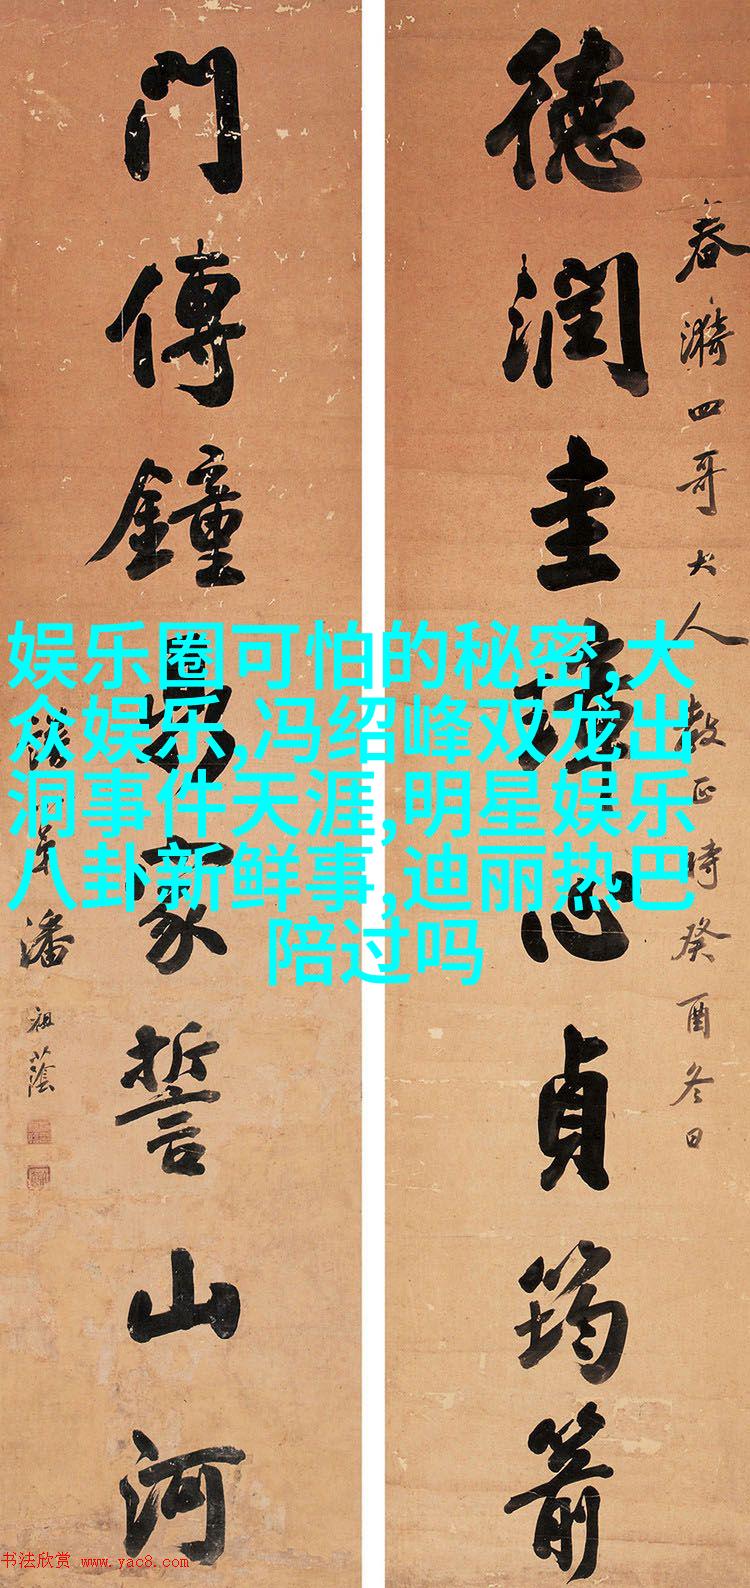 春漪四哥大人教正時癸酉冬日
德潤圭璋心貞筠箭
門傳鐘鼎家誓山河
弟潘祖蔭
娱乐圈可怕的秘密,大
众娱乐,冯绍峰双龙出
洞事件天涯,明星娱乐
八卦新鲜事,迪丽热巴
陪过吗
书法欣赏 www.yac8.com